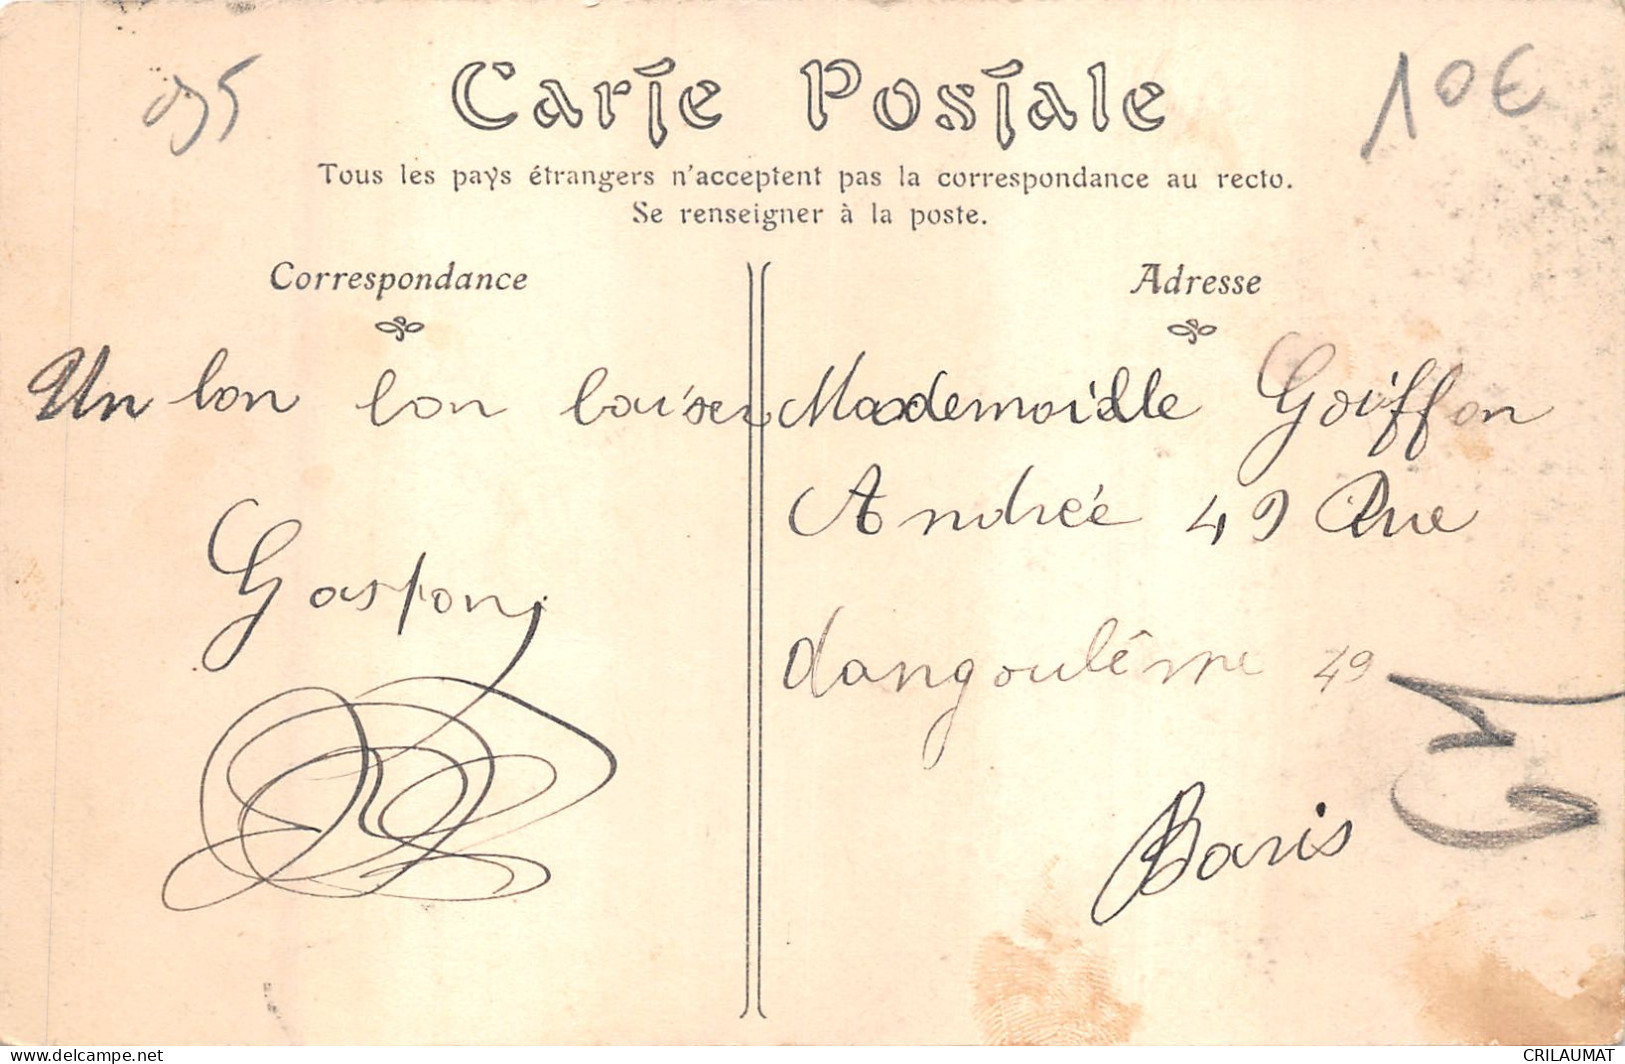 95
10€
Carte Postale
Tous les pays étrangers n'acceptent pas la correspondance au recto.
Se renseigner à la poste.
Correspondance
Un bon bon baiser
Gaston
Adresse
Mademoiselle Goiffon
Andrée 49 Rue
dangoulême 49
Paris
delcampe.net
CRILAUMAT